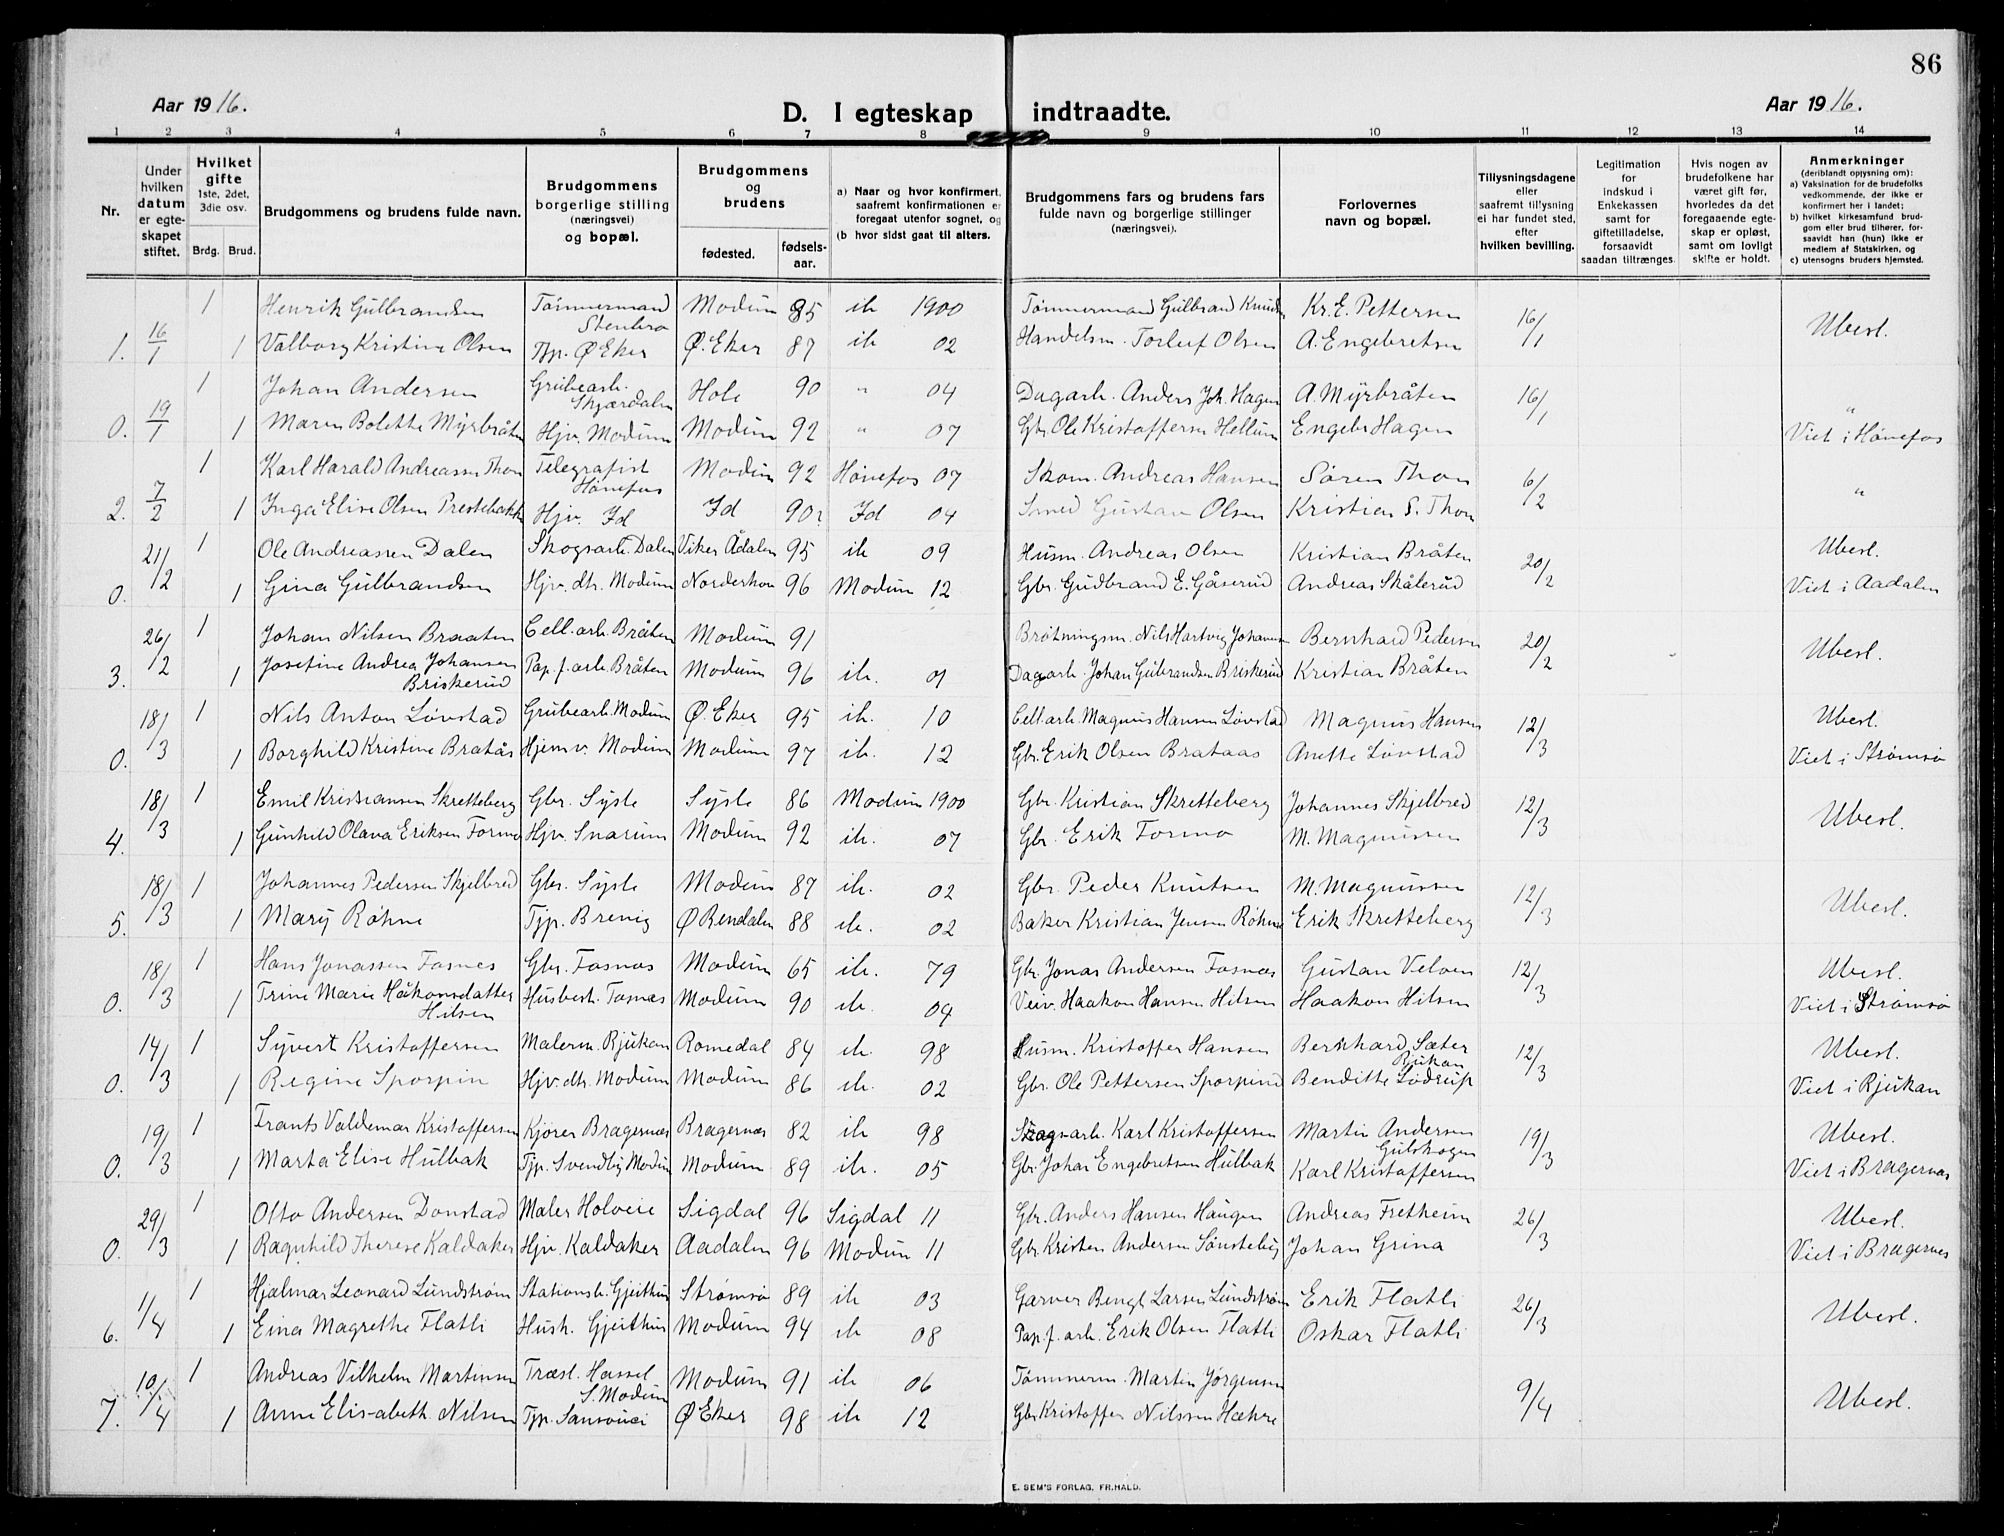 86
Aar 1916.
D. I egteskap indtraadte.
Aar 1916.
1 2 3 4 5 6 7 8 9 10 11 12 13 14
Nr.
Under hvilken datum er egteskapet stiftet.
Hvilket gifte 1ste, 2det, 3die osv. Brdg. Brud.
Brudgommens og brudens fulde navn.
Brudgommens borgerlige stilling (næringsvei) og bopæl.
Brudgommens og brudens fødested. fødselsaar.
a) Naar og hvor konfirmert, saafremt konfirmationen er foregaat utenfor sognet, og
(b hvor sidst gaat til alters.
Brudgommens fars og brudens fars fulde navn og borgerlige stillinger (næringsvei).
Forlovernes navn og bopæl.
Tillysningsdagene eller saafremt tillysning ei har fundet sted, efter hvilken bevilling.
Legitimation for indskud i Enkekassen samt for giftetilladelse, forsaavidt saadan tiltrænges.
Hvis nogen av brudefolkene har været gift før, hvorledes da det foregaaende egteskap er opløst, samt om lovligt skifte er holdt.
Anmerkninger (deriblandt opysning om):
a) Vaksination for de brudefolks vedkommende, der ikke er konfirmert her i landet;
b) hvilket kirkesamfund brudgom eller brud tilhører, forsaavidt han (hun) ikke er medlem af Statskirken, og
c) utensogns bruders hjemsted.
1 Henrik Gulbrandsen Tømmermand Stenbro Modum 85 ib 1900 Tømmermand Gulbrand Knuds Kr. E. Pettersen
1. 16/1 1 Valborg Kristine Olsen Tjp. Ø Eker Ø. Eker 87 ib 02 Handelsm. Torleif Olsen A. Engebretsen 16/1 Ubesl.
1 Johan Andersen Grubearb. Skjærdalen Hole 90 " 04 Dagarb. Anders Joh. Hagen A. Myrbråten
0. 19/1 1 Maren Bolette Myrbråten Hjv. Modum Modum 92 " 07 Gbr. Ole Kristoffersen Hellum Engebr Hagen 16/1 " Viet i Hønefos
1 Karl Harald Andreassen Thon Telegrafist Hønefos Modum 92 Hønefos 07 Skom. Andreas Hansen Søren Thon
2. 7/2 1 Inga Elise Olsen Prestebakke Hjv. Id Id 90? Id 04 Smed Gustav Olsen Kristian S. Thon 6/2 "
1 Ole Andreassen Dalen Skogsarb. Dalen Viker Ådalen 95 ib 09 Husm. Andreas Olsen Kristian Bråten Ubesl.
0. 21/2 1 Gina Gulbrandsen Hjv. dtr. Modum Norderhov 96 Modum 12 Gbr. Gudbrand E. Gåserud Andreas Skålerud 20/2 Viet i Aadalen
1 Johan Nilsen Braaten Cell. arb. Bråten Modum 91 Brøtningsm. Nils Hartvig Johansen Bernhard Pedersen
3. 26/2 1 Josefine Andrea Johansen Briskerud Pap. f. arb. Bråten Modum 96 ib. Dagarb. Johan Gulbrandsen Briskerud Kristian Bråten 20/2 Ubesl.
1 Nils Anton Løvstad Grubearb. Modum Ø. Eker 95 ib. 10 Cell. arb. Magnus Hansen Løvstad Magnus Hansen Ubesl.
0. 18/3 1 Borghild Kristine Bratås Hjemv. Modum Modum 97 ib. 12 Gbr. Erik Olsen Brataas Anette Løvstad 12/3 Viet i Strømsø
1 Emil Kristiansen Skretteberg Gbr. Sysle Sysle 86 Modum 1900 Gbr. Kristian Skretteberg Johannes Skjelbred
4. 18/3 1 Gunhild Olava Eriksen Formo Hjv. Snarum Modum 92 ib. 07 Gbr. Erik Formo M. Magnussen 12/3 Ubesl.
1 Johannes Pedersen Skjelbred Gbr. Sysle Modum 87 ib. 02 Gbr. Peder Knutsen M. Magnussen
5. 18/3 1 Mary Røhne Tjp. Brevig Ø Rendalen 88 ib. 02 Baker Kristian Jensen Røhne Erik Skretteberg 12/3 Ubesl.
1 Hans Jonassen Fosnes Gbr. Fosnæs Modum 65 ib. 79 Gbr. Jonas Andersen Fosnæs Gustav Velven Ubesl.
0. 18/3 1 Trine Marie Håkonsdatter Hilsen Husbest. Fosnæs Modum 90 ib. 04 Veiv. Haakon Hansen Hilsen Haakon Hilsen 12/3 Viet i Strømsø
1 Syvert Kristoffersen Malerm. Rjukan Romedal 84 ib. 98 Husm. Kristoffer Hansen Bernhard Sæter Rjukan Ubesl.
0. 14/3 1 Regine Sporpin Hjv. dtr. Modum Modum 86 ib. 02 Gbr. Ole Pettersen Sporpind Benditte Lødrup 12/3 Viet i Rjukan
1 Frants Valdemar Kristoffersen Kjører Bragernæs Bragernæs 82 ib 98 Skogsarb. Karl Kristoffersen Martin Andersen Gulskogen Ubesl.
0. 19/3 1 Marta Elise Hulbak Tjp. Svendby Modum Modum 89 ib. 05 Gbr. Johan Engebretsen Hulbak Karl Kristoffersen 19/3 Viet i Bragernæs
1 Otto Andersen Donstad Maler Holveie Sigdal 96 Sigdal 11 Gbr. Anders Hansen Haugen Andreas Fretheim Ubesl.
0. 29/3 1 Ragnhild Therese Kaldaker Hjv. Kaldaker Aadalen 96 Modum 11 Gbr. Kristen Andersen Sønsteby Johan Grina 26/3 Viet i Bragernes
1 Hjalmar Leonard Lundstrøm Stationsb. Gjeithus Strømsø 89 ib 03 Garver Bengt Larsen Lundstrøm Erik Flatli
6. 1/4 1 Eina Magrethe Flatli Hush. Gjeithus Modum 94 ib 08 Pap. f. arb. Erik Olsen Flatli Oskar Flatli 26/3 Ubesl.
1 Andreas Vilhelm Martinsen Træsl. Hassel S. Modum Modum 91 ib 06 Tømmerm. Martin Jørgensen
7. 10/4 1 Anne Elisabeth Nilsen Tjp. Sansouci Ø Eker 98 ib 12 Gbr Kristoffer Nilssen Hæhre 9/4 Ubesl.
E. SEM'S FORLAG, FR.HALD.